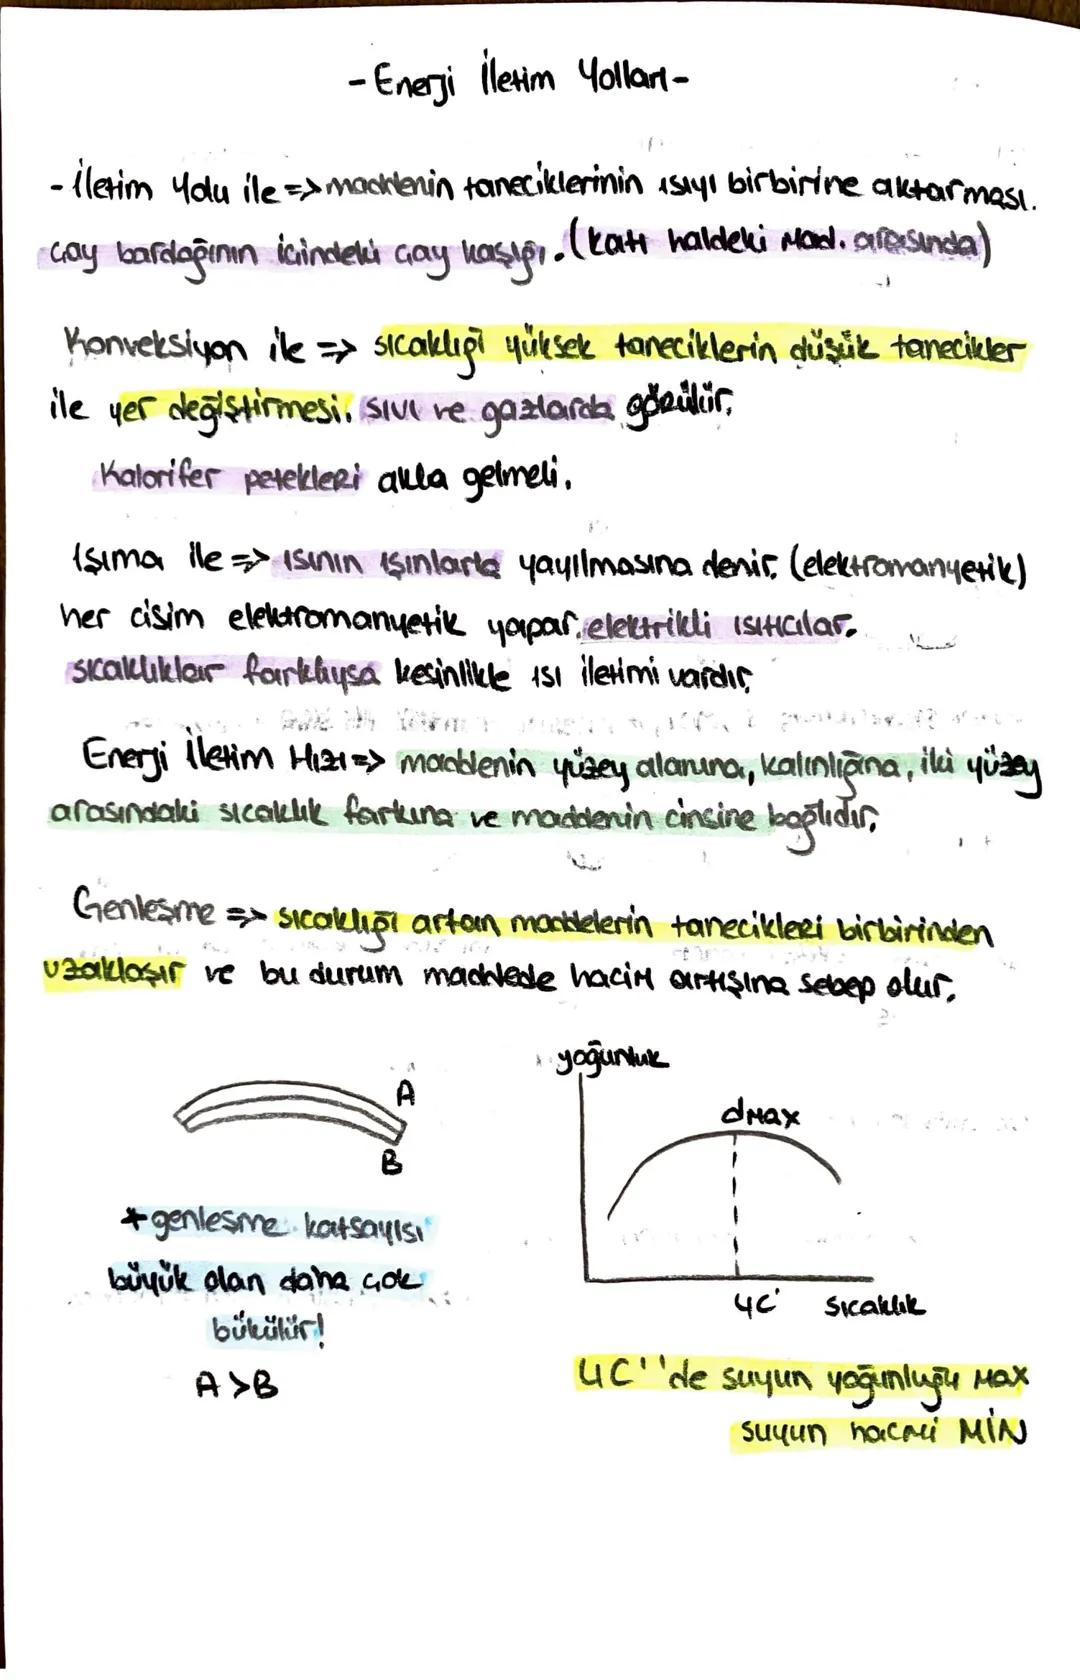 - Enerji İletim Yolları -
- İletim Yolu ile => maddenin taneciklerinin ısıyı birbirine aktarması.
çay bardağının içindeki çay kaşığı. (katı haldeki Mad. arasında)
Konveksiyon ile => sıcaklığı yüksek taneciklerin düşük tanecikler
ile yer değiştirmesi. sıvı ve gazlarda görülür.
Kalorifer petekleri akla gelmeli.
Işıma ile => ısının ışınlarla yayılmasına denir. (elektromanyetik)
her cisim elektromanyetik yapar. elektrikli ısıtıcılar.
sıcaklıklar farklıysa kesinlikle ısı iletimi vardır.
Enerji İletim Hızı => maddenin yüzey alanına, kalınlığına, iki yüzey
arasındaki sıcaklık farkına ve maddenin cinsine bağlıdır.
Genleşme => sıcaklığı artan maddelerin tanecikleri birbirinden
uzaklaşır ve bu durum maddede hacim artışına sebep olur.
A
B
* genleşme katsayısı
büyük olan daha çok
bükülür!
A > B
yoğunluk
dmax
4C° sıcaklık
4C°'de suyun yoğunluğu max
suyun hacmi MİN